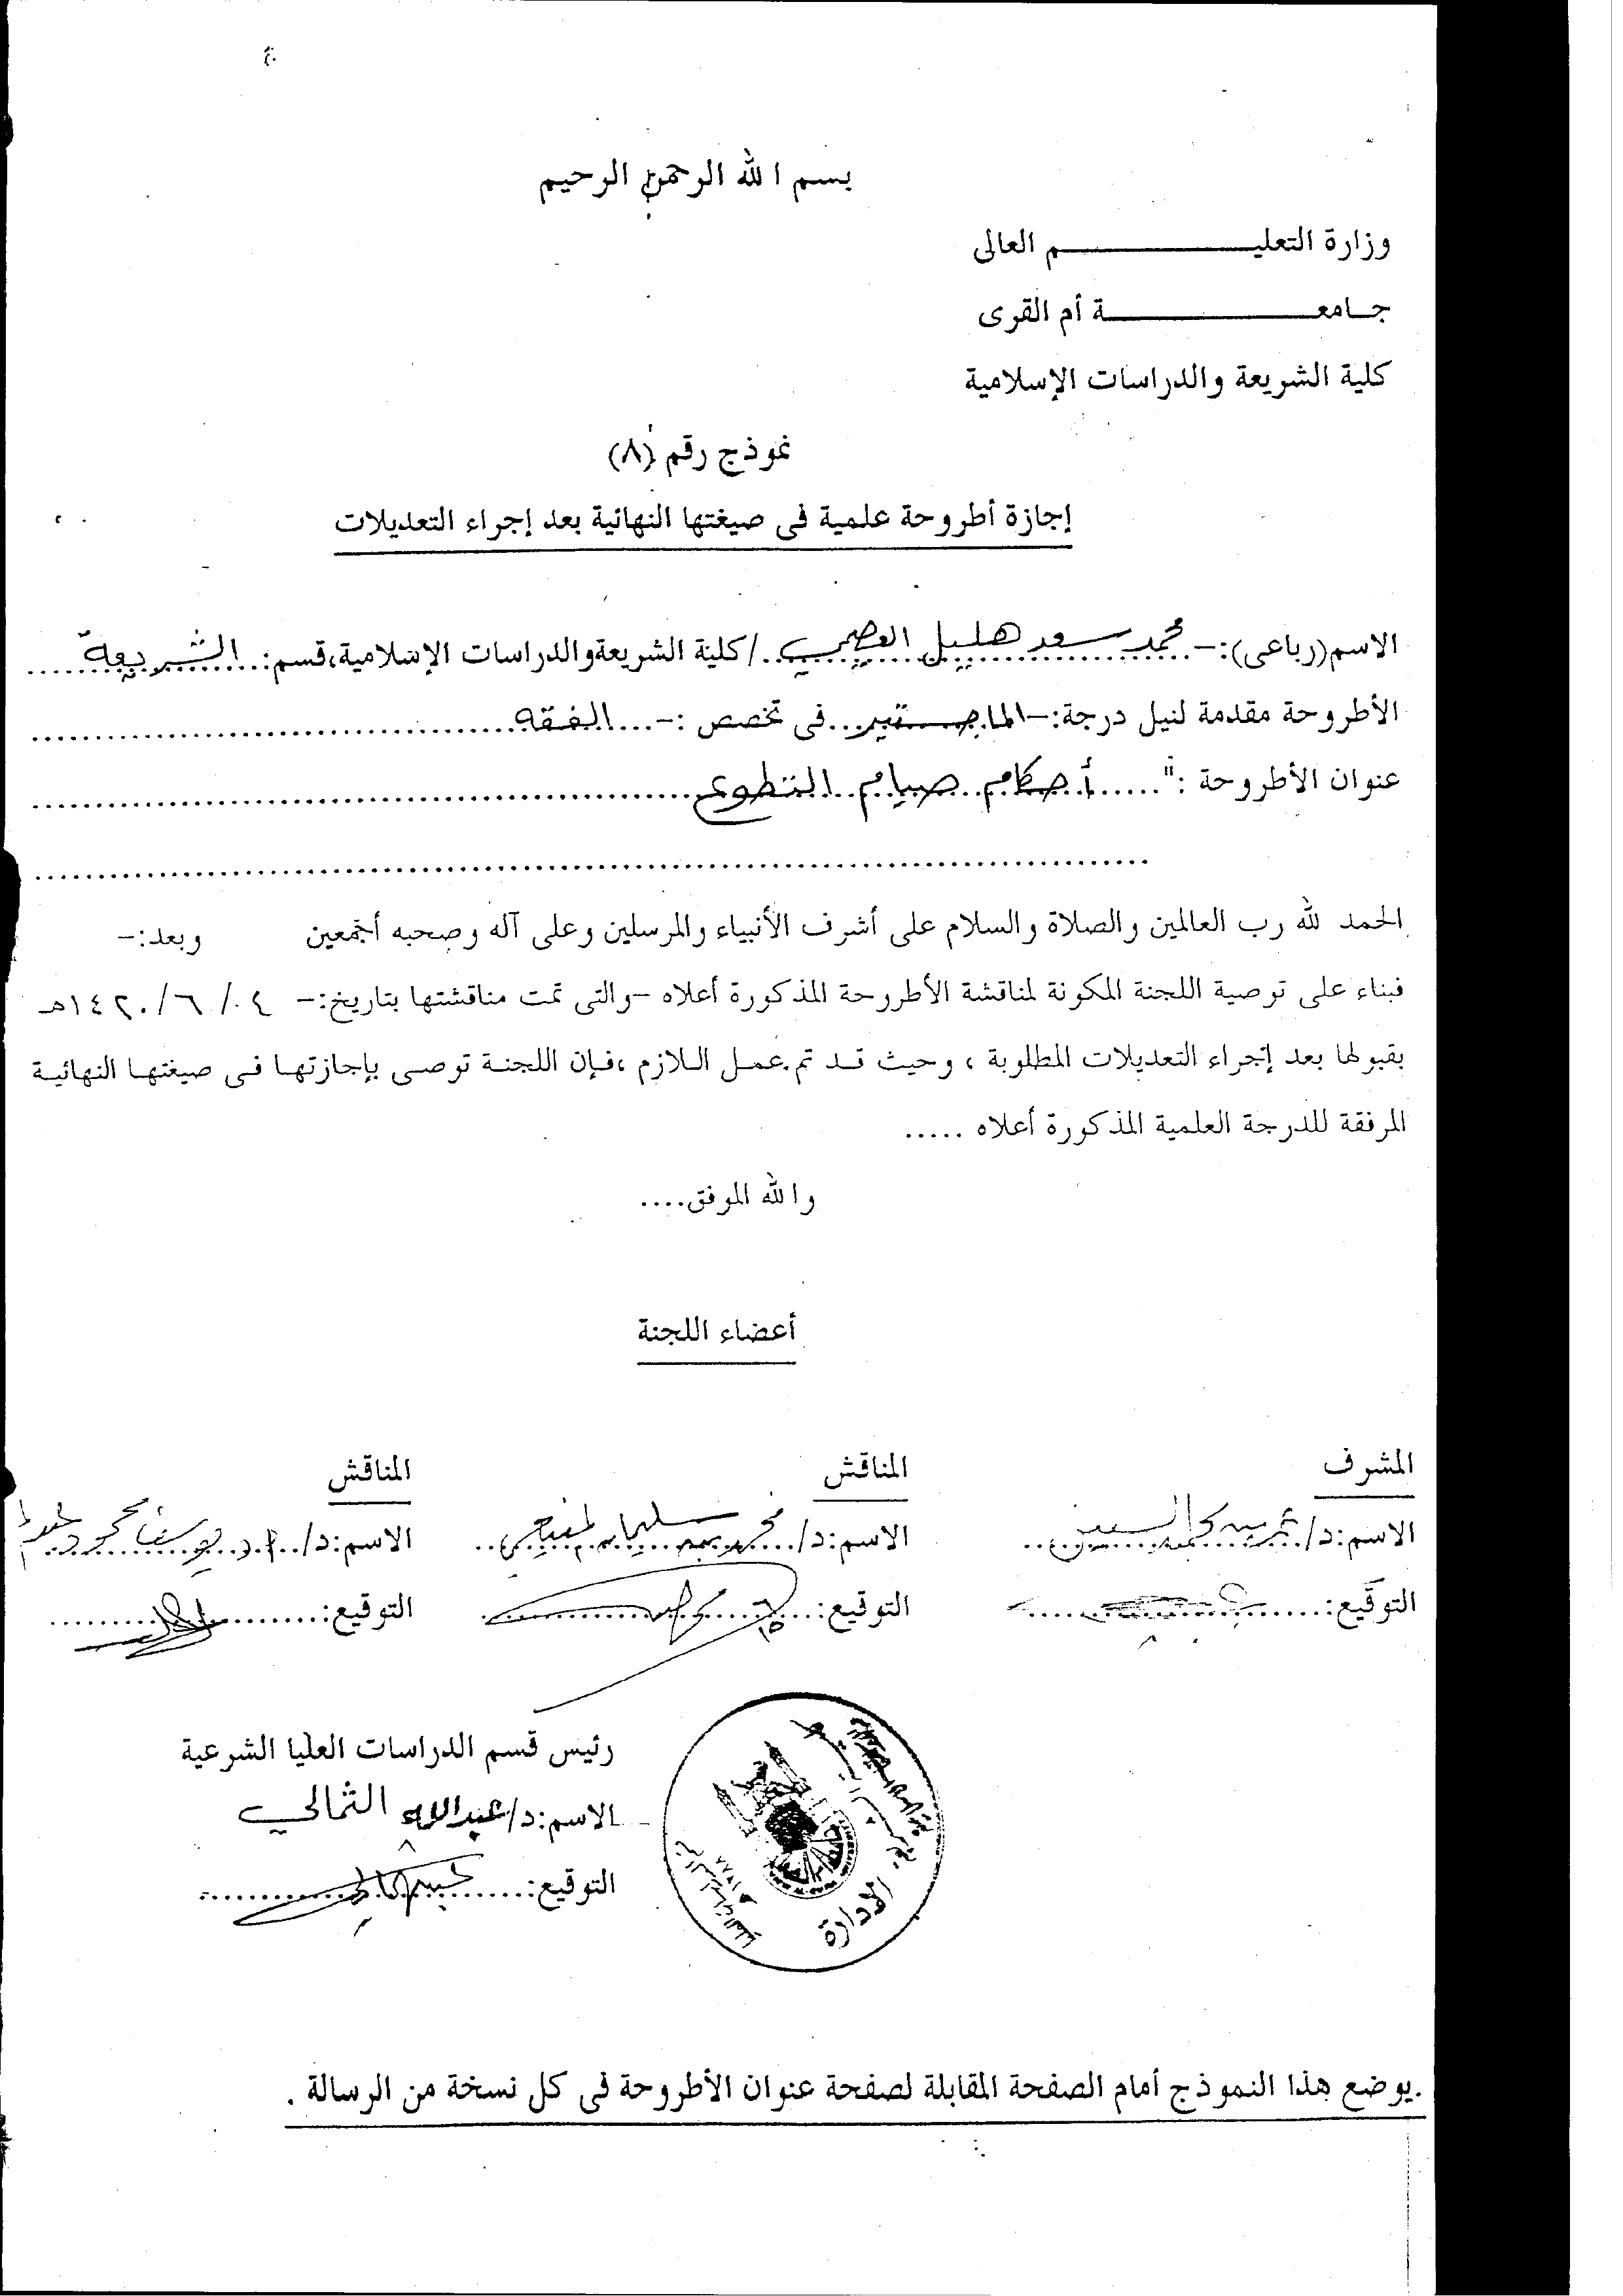 بسم الله الرحمن الرحيم
وزارة التعليم العالى
جامعة أم القرى
كلية الشريعة والدراسات الإسلامية
نموذج رقم (٨)
إجازة أطروحة علمية فى صيغتها النهائية بعد إجراء التعديلات
الاسم(رباعى):- محمد سعد هليل العصيمي /كلية الشريعة والدراسات الإسلامية،قسم: الشريعة
الأطروحة مقدمة لنيل درجة:- الماجستير فى تخصص :- الفقه
عنوان الأطروحة :" أحكام صيام التطوع
الحمد لله رب العالمين والصلاة والسلام على أشرف الأنبياء والمرسلين وعلى آله وصحبه أجمعين وبعد:-
فبناء على توصية اللجنة المكونة لمناقشة الأطروحة المذكورة أعلاه -والتى تمت مناقشتها بتاريخ:- ٠٤/ ٦ /١٤٢٠هـ
بقبولها بعد إجراء التعديلات المطلوبة ، وحيث قد تم عمل اللازم ،فإن اللجنة توصى بإجازتها فى صيغتها النهائية
المرفقة للدرجة العلمية المذكورة أعلاه .....
والله الموفق....
أعضاء اللجنة
المشرف المناقش المناقش
الاسم:د/ الاسم:د/ محمد بن سليمان المنيعي الاسم:د/ يوسف محمود
التوقيع: التوقيع: التوقيع:
رئيس قسم الدراسات العليا الشرعية
الاسم:د/عبدالله الثمالي
التوقيع:
الإدارة
.يوضع هذا النموذج أمام الصفحة المقابلة لصفحة عنوان الأطروحة فى كل نسخة من الرسالة .